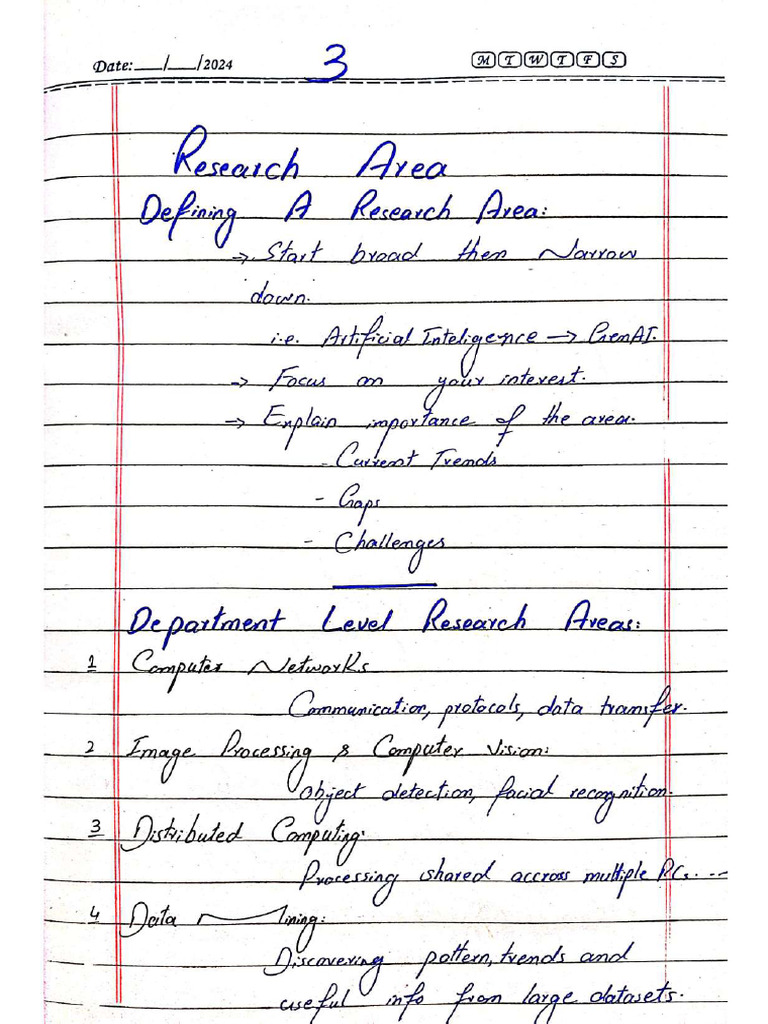 Date:___/___/2024
3
M T W T F S
Research Area
Defining A Research Area:
→ Start broad then Narrow
down.
i.e. Artificial Inteligence → GenAI.
→ Focus on your interest.
→ Explain importance of the area.
- Current Trends
- Gaps
- Challenges
Department Level Research Areas:
1 Computer Networks
Communication, protocols, data transfer.
2 Image Processing & Computer Vision:
Object detection, facial recognition.
3 Distributed Computing:
Processing shared accross multiple PCs.---
4 Data Mining:
Discovering pattern, trends and
useful info from large datasets.